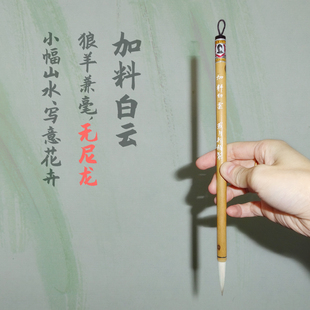 加料白云
狼羊兼毫,无尼龙
小幅山水、写意花卉